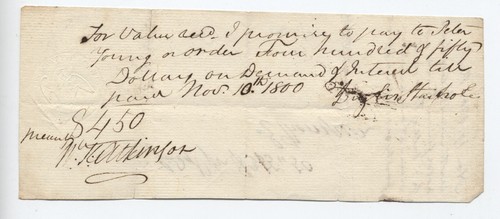 For Value recd. I promise to pay to Peter
Young or order Four hundred & fifty
Dollars on Demand & Interest till
paid Nov. 10th 1800
$450
Wm K Atkinson